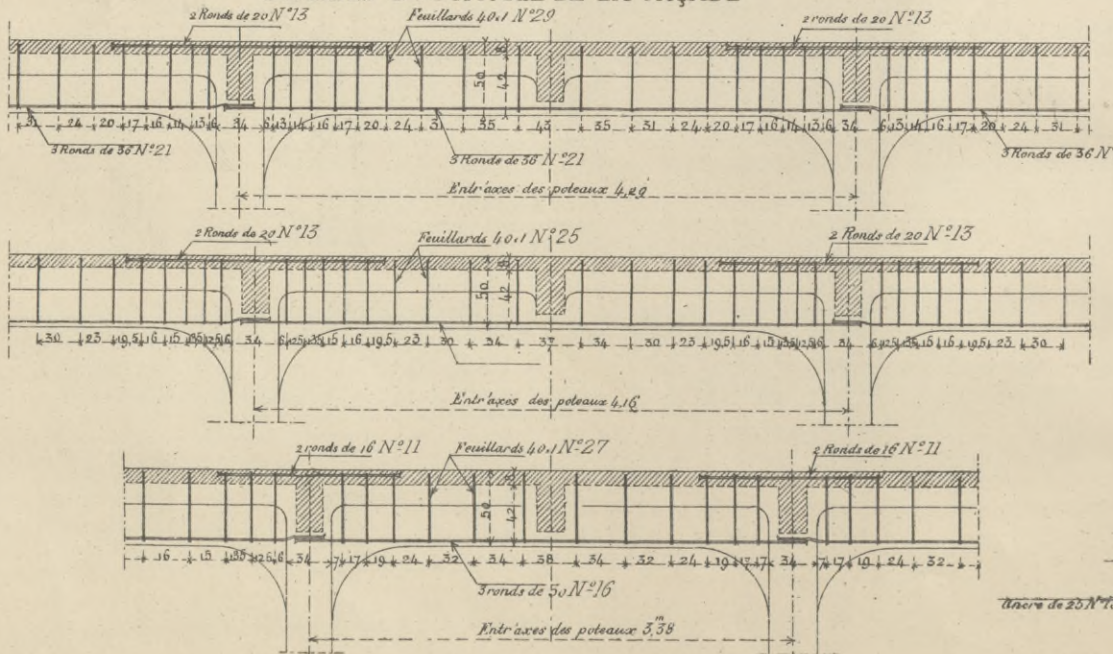 2 Ronds de 20 N°13
Feuillards 40.1 N°29
2 ronds de 20 N°13
8
50
42
31 24 20 17 16 14 13 6 34 6 13 14 16 17 20 24 31 35 43 35 31 24 20 17 16 14 13 6 34 6 13 14 16 17 20 24 31
3 Ronds de 36 N°21
3 Ronds de 36 N°21
3 Ronds de 36 N°
Entr'axes des poteaux 4,29
2 Ronds de 20 N°13
Feuillards 40.1 N°25
2 Ronds de 20 N°13
8
50
42
30 23 19,5 16 15 13,5 12,5 6 34 6 12,5 13,5 15 16 19,5 23 30 34 37 34 30 23 19,5 16 15 13,5 12,5 6 34 6 12,5 13,5 15 16 19,5 23 30
Entr'axes des poteaux 4,16
2 ronds de 16 N°11
Feuillards 40.1 N°27
2 Ronds de 16 N°11
8
50
42
16 15 13,5 12,5 6 34 7 17 19 24 32 34 38 34 32 24 19 17 7 34 7 17 19 24 32
3 ronds de 30 N°16
Ancre de 25
Entr'axes des poteaux 3,38
m